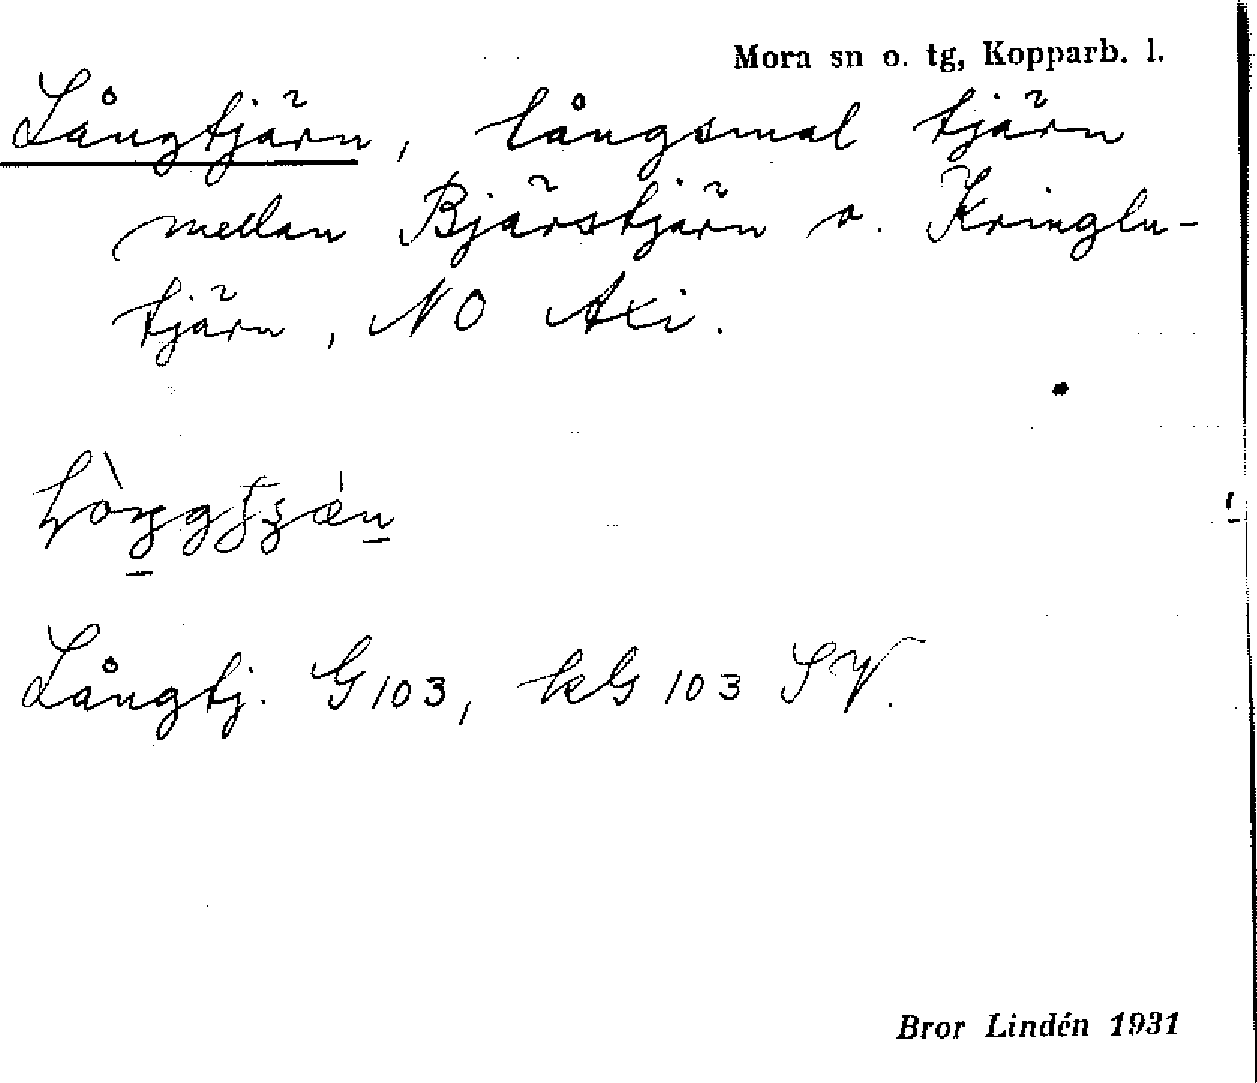 Mora sn o. tg, Kopparb. l.
Långtjärn, långsmal tjärn
mellan Bjärstjärn o. Kringlu-
tjärn, NO Axi.
Långtj. G 103, kG 103 SV.
Bror Lindén 1931